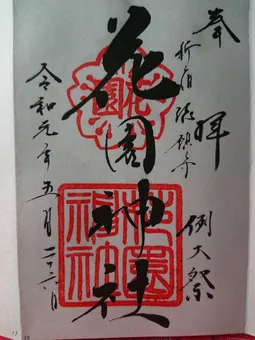 奉拝
折角
例大祭
花園神社
花園
花園神社
令和元年五月二十六日